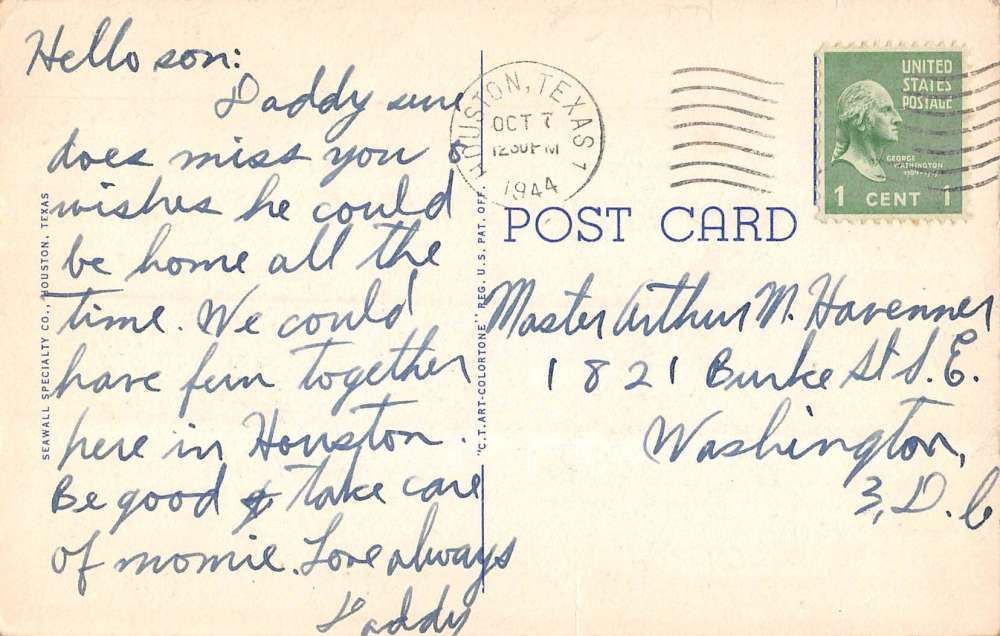 Hello son:
Daddy sure
does miss you &
wishes he could
be home all the
time. We could
have fun together
here in Houston.
Be good & take care
of momie. Love always
Daddy
SEAWALL SPECIALTY CO., HOUSTON, TEXAS
"C.T. ART-COLORTONE" REG. U.S. PAT. OFF.
HOUSTON, TEXAS 1
OCT 7
12 30 PM
1944
UNITED
STATES
POSTAGE
GEORGE
WASHINGTON
1 CENT 1
POST CARD
Master Arthur M. Havenner
1821 Burke St S.E.
Washington,
3, D.C